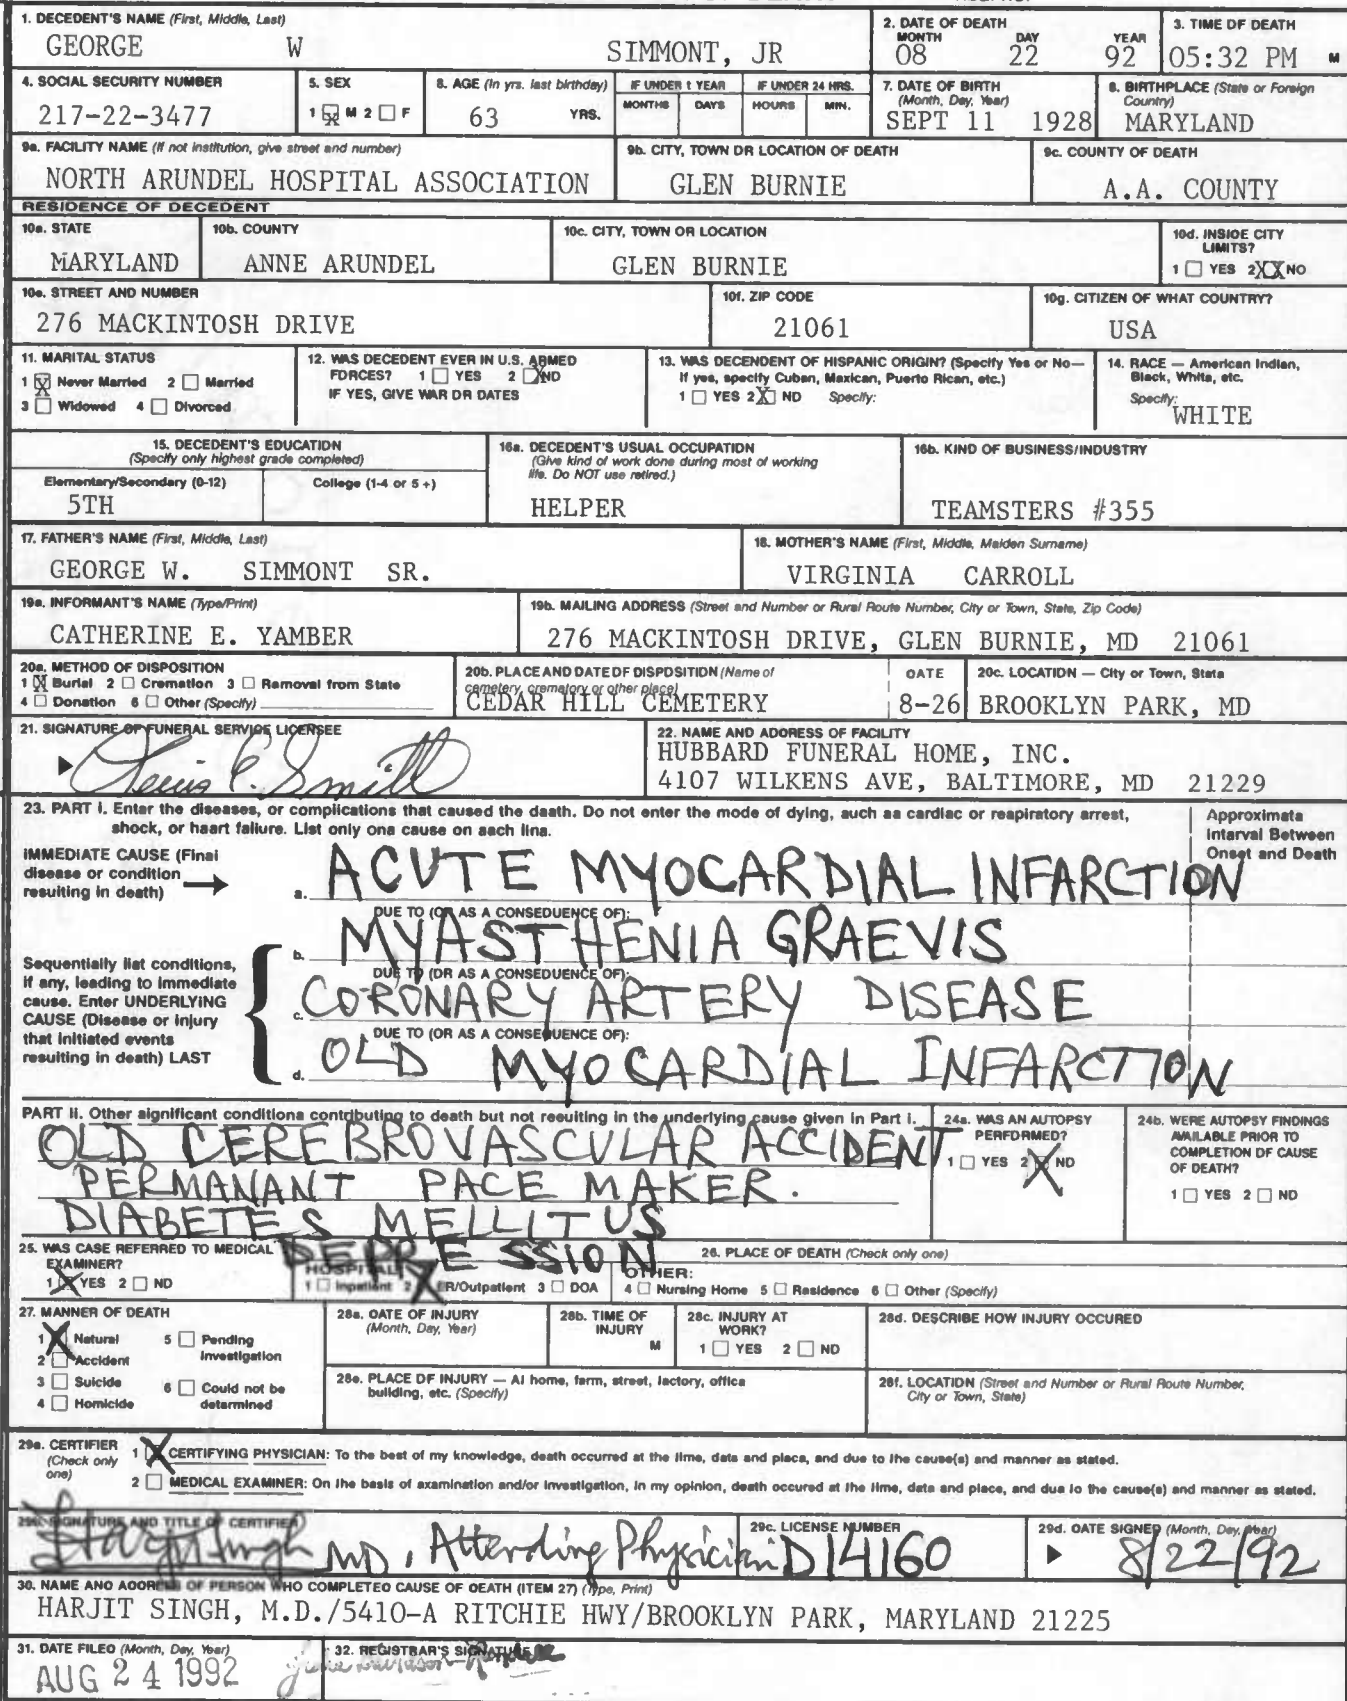 1. DECEDENT'S NAME (First, Middle, Last)
GEORGE W SIMMONT, JR
2. DATE OF DEATH
MONTH DAY YEAR
08 22 92
3. TIME OF DEATH
05:32 PM M
4. SOCIAL SECURITY NUMBER
217-22-3477
5. SEX
1 ☒ M 2 ☐ F
6. AGE (In yrs. last birthday)
63 YRS.
IF UNDER 1 YEAR
MONTHS DAYS
IF UNDER 24 HRS.
HOURS MIN.
7. DATE OF BIRTH
(Month, Day, Year)
SEPT 11 1928
8. BIRTHPLACE (State or Foreign
Country)
MARYLAND
9a. FACILITY NAME (If not institution, give street and number)
NORTH ARUNDEL HOSPITAL ASSOCIATION
9b. CITY, TOWN OR LOCATION OF DEATH
GLEN BURNIE
9c. COUNTY OF DEATH
A.A. COUNTY
RESIDENCE OF DECEDENT
10a. STATE
MARYLAND
10b. COUNTY
ANNE ARUNDEL
10c. CITY, TOWN OR LOCATION
GLEN BURNIE
10d. INSIDE CITY
LIMITS?
1 ☐ YES 2 XX NO
10e. STREET AND NUMBER
276 MACKINTOSH DRIVE
10f. ZIP CODE
21061
10g. CITIZEN OF WHAT COUNTRY?
USA
11. MARITAL STATUS
1 ☒ Never Married 2 ☐ Married
3 ☐ Widowed 4 ☐ Divorced
12. WAS DECEDENT EVER IN U.S. ARMED
FORCES? 1 ☐ YES 2 ☒ NO
IF YES, GIVE WAR OR DATES
13. WAS DECENDENT OF HISPANIC ORIGIN? (Specify Yes or No—
If yes, specify Cuban, Mexican, Puerto Rican, etc.)
1 ☐ YES 2 ☒ NO Specify:
14. RACE — American Indian,
Black, White, etc.
Specify:
WHITE
15. DECEDENT'S EDUCATION
(Specify only highest grade completed)
Elementary/Secondary (0-12) College (1-4 or 5+)
5TH
16a. DECEDENT'S USUAL OCCUPATION
(Give kind of work done during most of working
life. Do NOT use retired.)
HELPER
16b. KIND OF BUSINESS/INDUSTRY
TEAMSTERS #355
17. FATHER'S NAME (First, Middle, Last)
GEORGE W. SIMMONT SR.
18. MOTHER'S NAME (First, Middle, Maiden Surname)
VIRGINIA CARROLL
19a. INFORMANT'S NAME (Type/Print)
CATHERINE E. YAMBER
19b. MAILING ADDRESS (Street and Number or Rural Route Number, City or Town, State, Zip Code)
276 MACKINTOSH DRIVE, GLEN BURNIE, MD 21061
20a. METHOD OF DISPOSITION
1 ☒ Burial 2 ☐ Cremation 3 ☐ Removal from State
4 ☐ Donation 6 ☐ Other (Specify)
20b. PLACE AND DATE OF DISPOSITION (Name of
cemetery, crematory or other place)
CEDAR HILL CEMETERY
DATE
8-26
20c. LOCATION — City or Town, State
BROOKLYN PARK, MD
21. SIGNATURE OF FUNERAL SERVICE LICENSEE
Smith
22. NAME AND ADDRESS OF FACILITY
HUBBARD FUNERAL HOME, INC.
4107 WILKENS AVE, BALTIMORE, MD 21229
23. PART I. Enter the diseases, or complications that caused the death. Do not enter the mode of dying, such as cardiac or respiratory arrest,
shock, or heart failure. List only one cause on each line.
Approximate
Interval Between
Onset and Death
IMMEDIATE CAUSE (Final
disease or condition
resulting in death) →
a. ACUTE MYOCARDIAL INFARCTION
DUE TO (OR AS A CONSEQUENCE OF):
b. MYASTHENIA GRAEVIS
DUE TO (OR AS A CONSEQUENCE OF):
c. CORONARY ARTERY DISEASE
DUE TO (OR AS A CONSEQUENCE OF):
d. OLD MYOCARDIAL INFARCTION
Sequentially list conditions,
if any, leading to immediate
cause. Enter UNDERLYING
CAUSE (Disease or injury
that initiated events
resulting in death) LAST
PART II. Other significant conditions contributing to death but not resulting in the underlying cause given in Part I.
OLD CEREBROVASCULAR ACCIDENT
PERMANANT PACE MAKER.
DIABETES MELLITUS
DEPRESSION
24a. WAS AN AUTOPSY
PERFORMED?
1 ☐ YES 2 ☒ NO
24b. WERE AUTOPSY FINDINGS
AVAILABLE PRIOR TO
COMPLETION OF CAUSE
OF DEATH?
1 ☐ YES 2 ☐ NO
25. WAS CASE REFERRED TO MEDICAL
EXAMINER?
1 ☒ YES 2 ☐ NO
26. PLACE OF DEATH (Check only one)
HOSPITAL:
1 ☐ Inpatient 2 ☒ ER/Outpatient 3 ☐ DOA
OTHER:
4 ☐ Nursing Home 5 ☐ Residence 6 ☐ Other (Specify)
27. MANNER OF DEATH
1 ☒ Natural 5 ☐ Pending
Investigation
2 ☐ Accident
3 ☐ Suicide 6 ☐ Could not be
determined
4 ☐ Homicide
28a. DATE OF INJURY
(Month, Day, Year)
28b. TIME OF
INJURY
M
28c. INJURY AT
WORK?
1 ☐ YES 2 ☐ NO
28d. DESCRIBE HOW INJURY OCCURED
28e. PLACE OF INJURY — At home, farm, street, factory, office
building, etc. (Specify)
28f. LOCATION (Street and Number or Rural Route Number,
City or Town, State)
29a. CERTIFIER
(Check only
one)
1 ☒ CERTIFYING PHYSICIAN: To the best of my knowledge, death occurred at the time, date and place, and due to the cause(s) and manner as stated.
2 ☐ MEDICAL EXAMINER: On the basis of examination and/or investigation, in my opinion, death occured at the time, date and place, and due to the cause(s) and manner as stated.
29b. SIGNATURE AND TITLE OF CERTIFIER
Harjit Singh MD, Attending Physician
29c. LICENSE NUMBER
D14160
29d. DATE SIGNED (Month, Day, Year)
8/22/92
30. NAME AND ADDRESS OF PERSON WHO COMPLETED CAUSE OF DEATH (ITEM 27) (Type, Print)
HARJIT SINGH, M.D./5410-A RITCHIE HWY/BROOKLYN PARK, MARYLAND 21225
31. DATE FILED (Month, Day, Year)
AUG 24 1992
32. REGISTRAR'S SIGNATURE